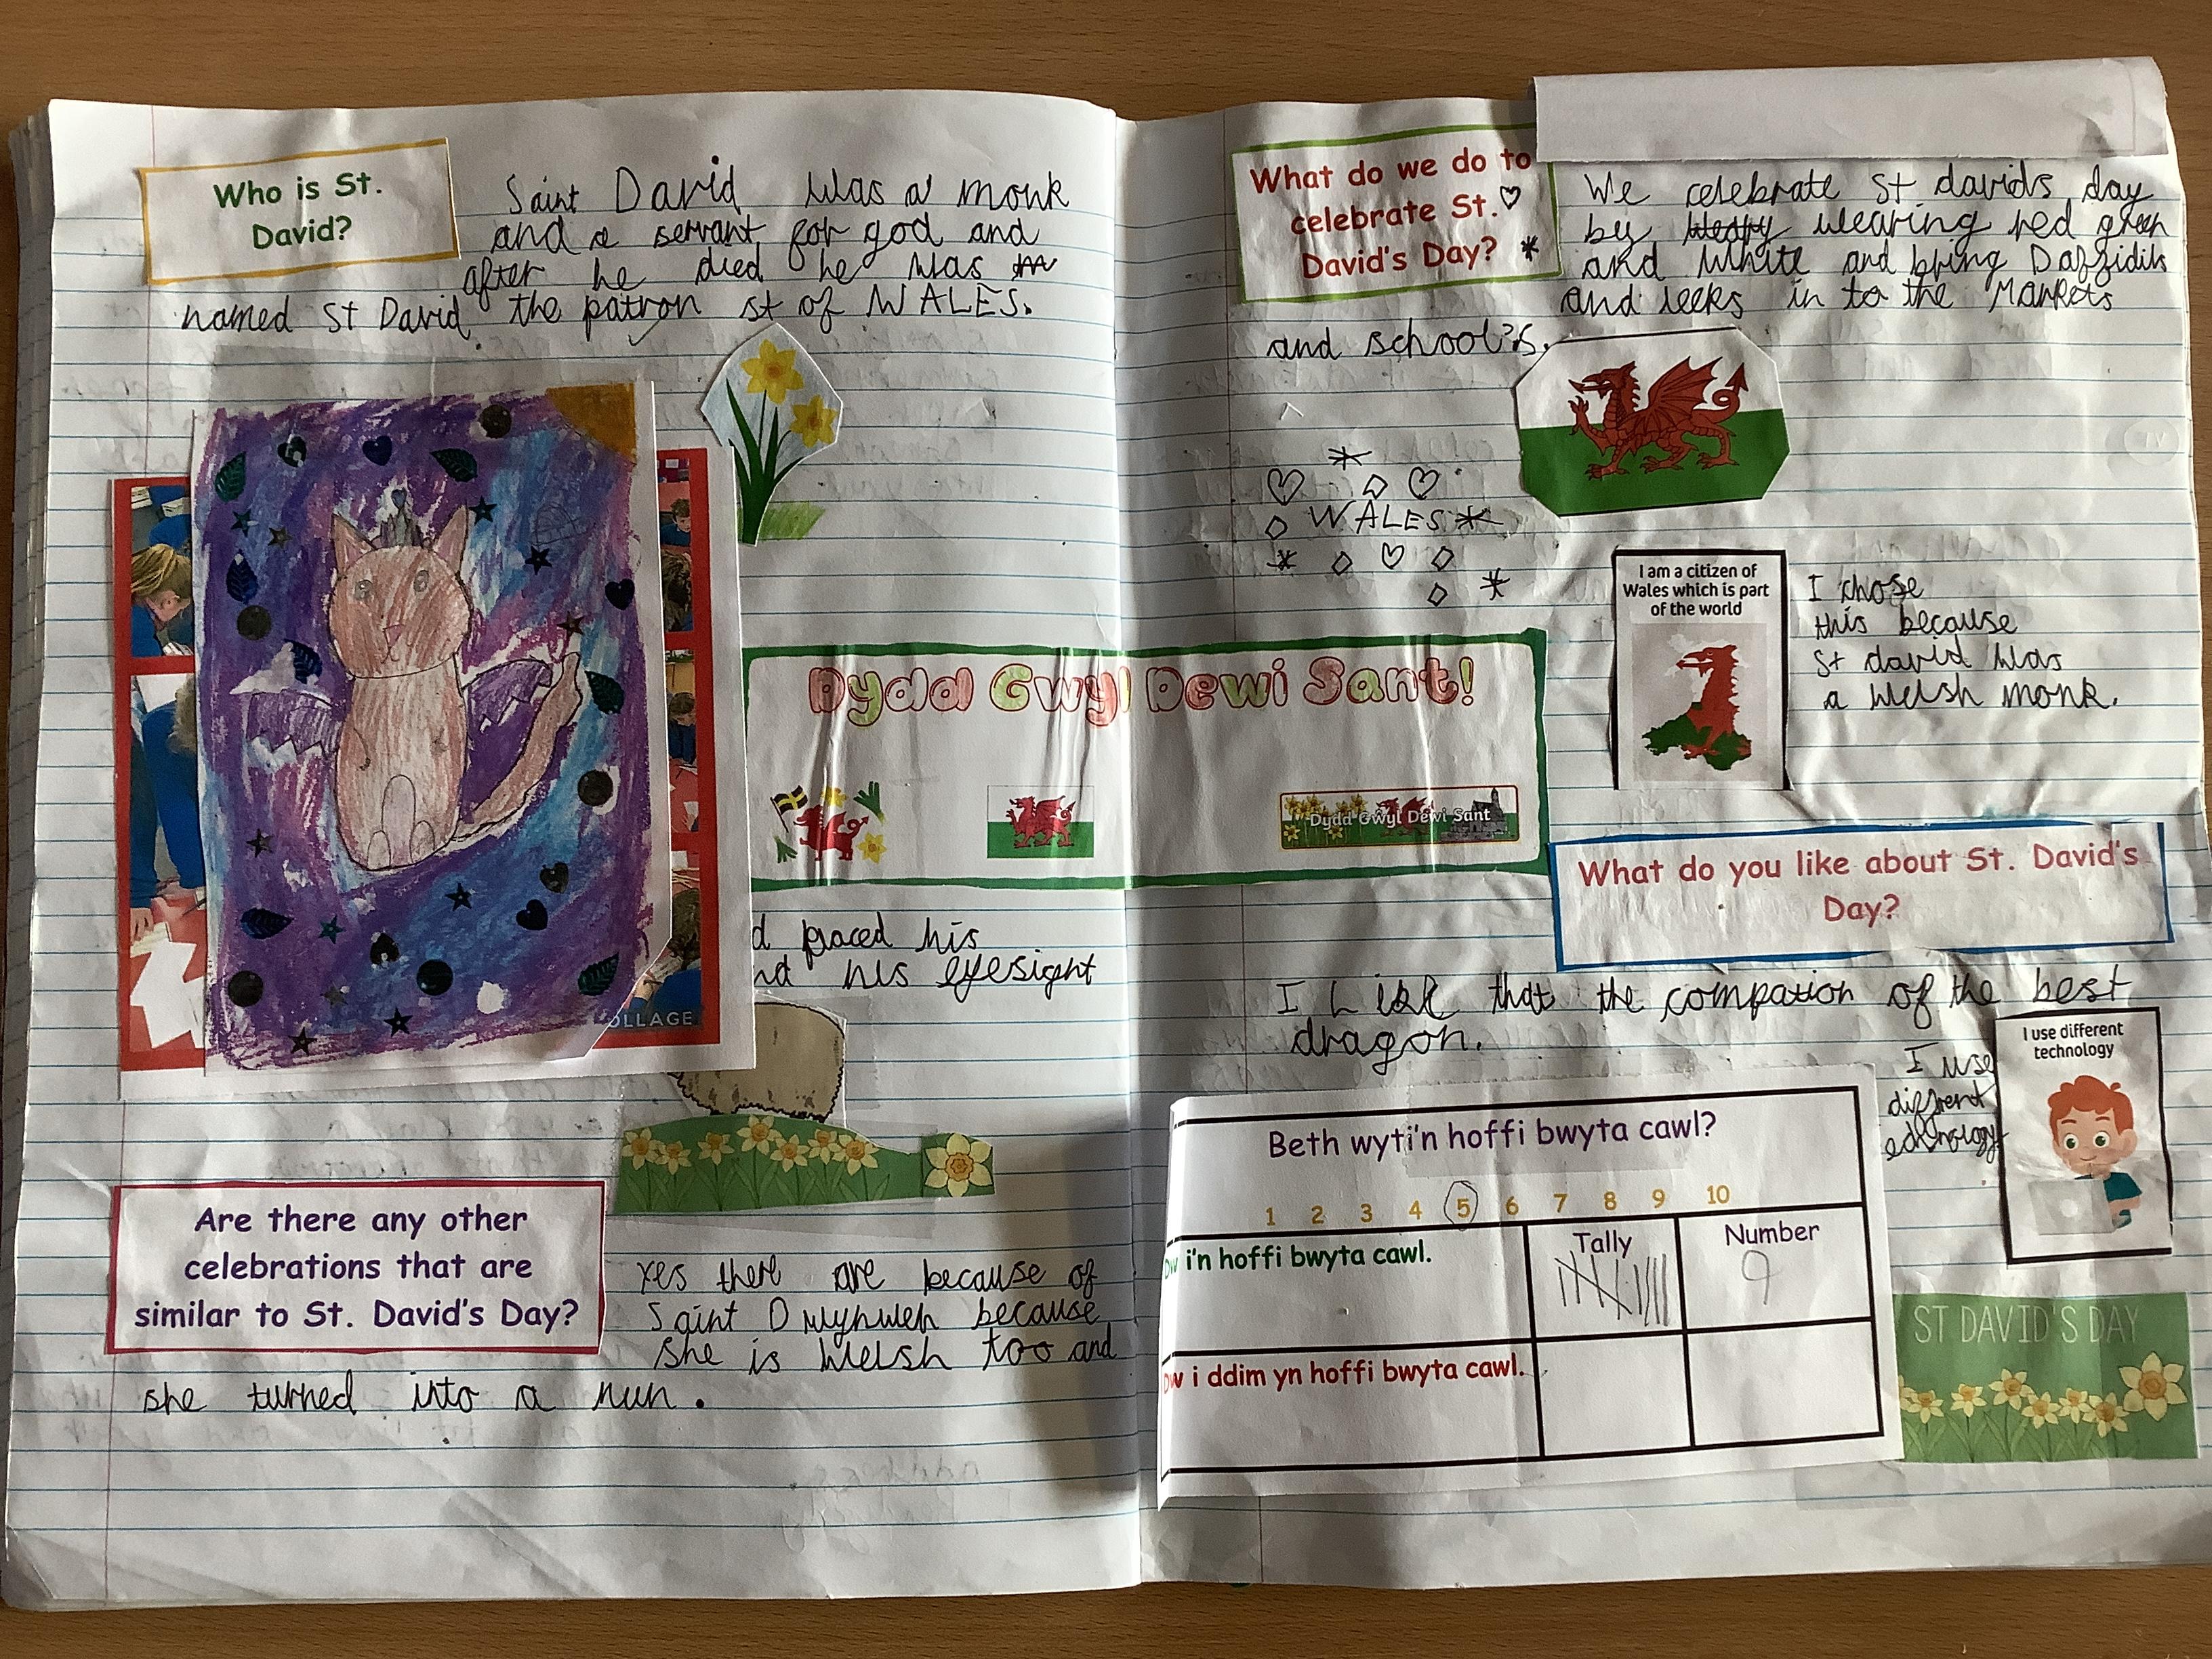 Who is St.
David?
Saint David was a monk
and a servant for god and
after he died he was
named St David the patron st of WALES.
OLLAGE
d placed his
nd his eyesight
Are there any other
celebrations that are
similar to St. David's Day?
yes there are because of
Saint Dwynwen because
she is Welsh too and
she turned into a nun.
Dydd Gwyl Dewi Sant!
Dydd Gwyl Dewi Sant
What do we do to
celebrate St.
David's Day?
We celebrate St davids day
by wearing red green
and white and bring Daffidils
and leeks in to the Markets
and school's.
WALES
I am a citizen of
Wales which is part
of the world
I chose
this because
St david was
a Welsh monk.
What do you like about St. David's
Day?
I Likl that the compation of the best
dragon.
I use different
technology
I use
diffrent
Beth wyti'n hoffi bwyta cawl?
1 2 3 4 5 6 7 8 9 10
Tally
Number
Dw i'n hoffi bwyta cawl.
9
Dw i ddim yn hoffi bwyta cawl.
ST DAVID'S DAY